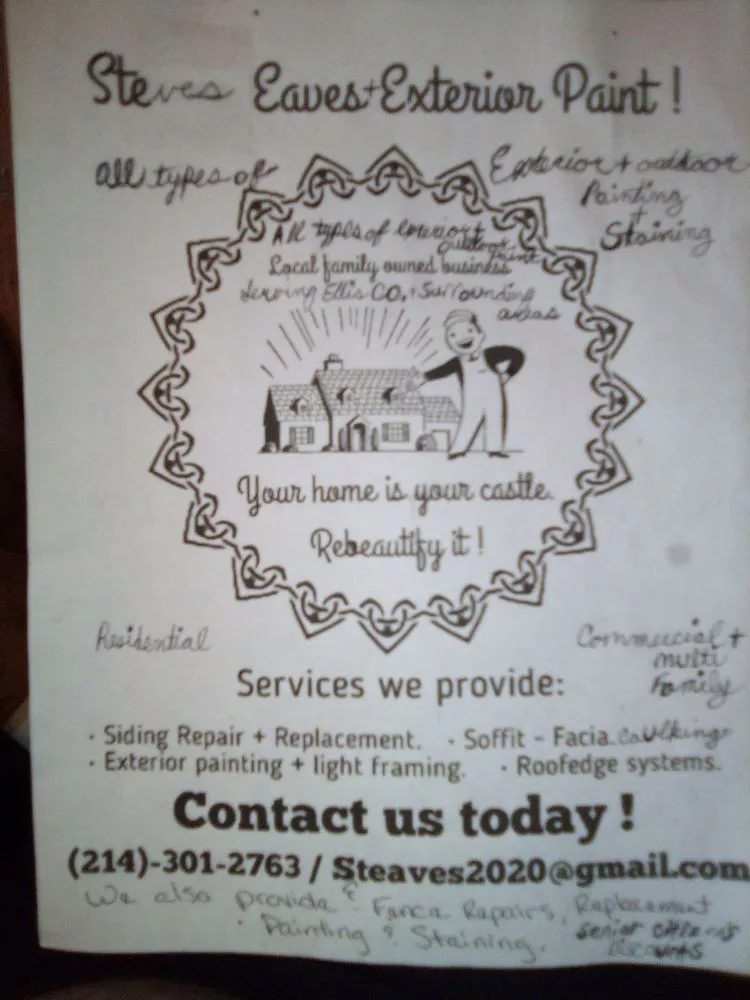 Steves Eaves+Exterior Paint !
All types of
Exterior + outdoor
Painting
+
Staining
All types of Exterior +
outdoor
paint
Local family owned business
Serving Ellis CO. + Surrounding
areas
Your home is your castle.
Rebeautify it !
Residential
Commercial +
multi
Family
Services we provide:
· Siding Repair + Replacement. · Soffit - Facia. Caulking
· Exterior painting + light framing. · Roofedge systems.
Contact us today !
(214)-301-2763 / Steaves2020@gmail.com
We also provide & Fence Repairs, Replacement
· Painting & Staining.
senior citizens
Discounts